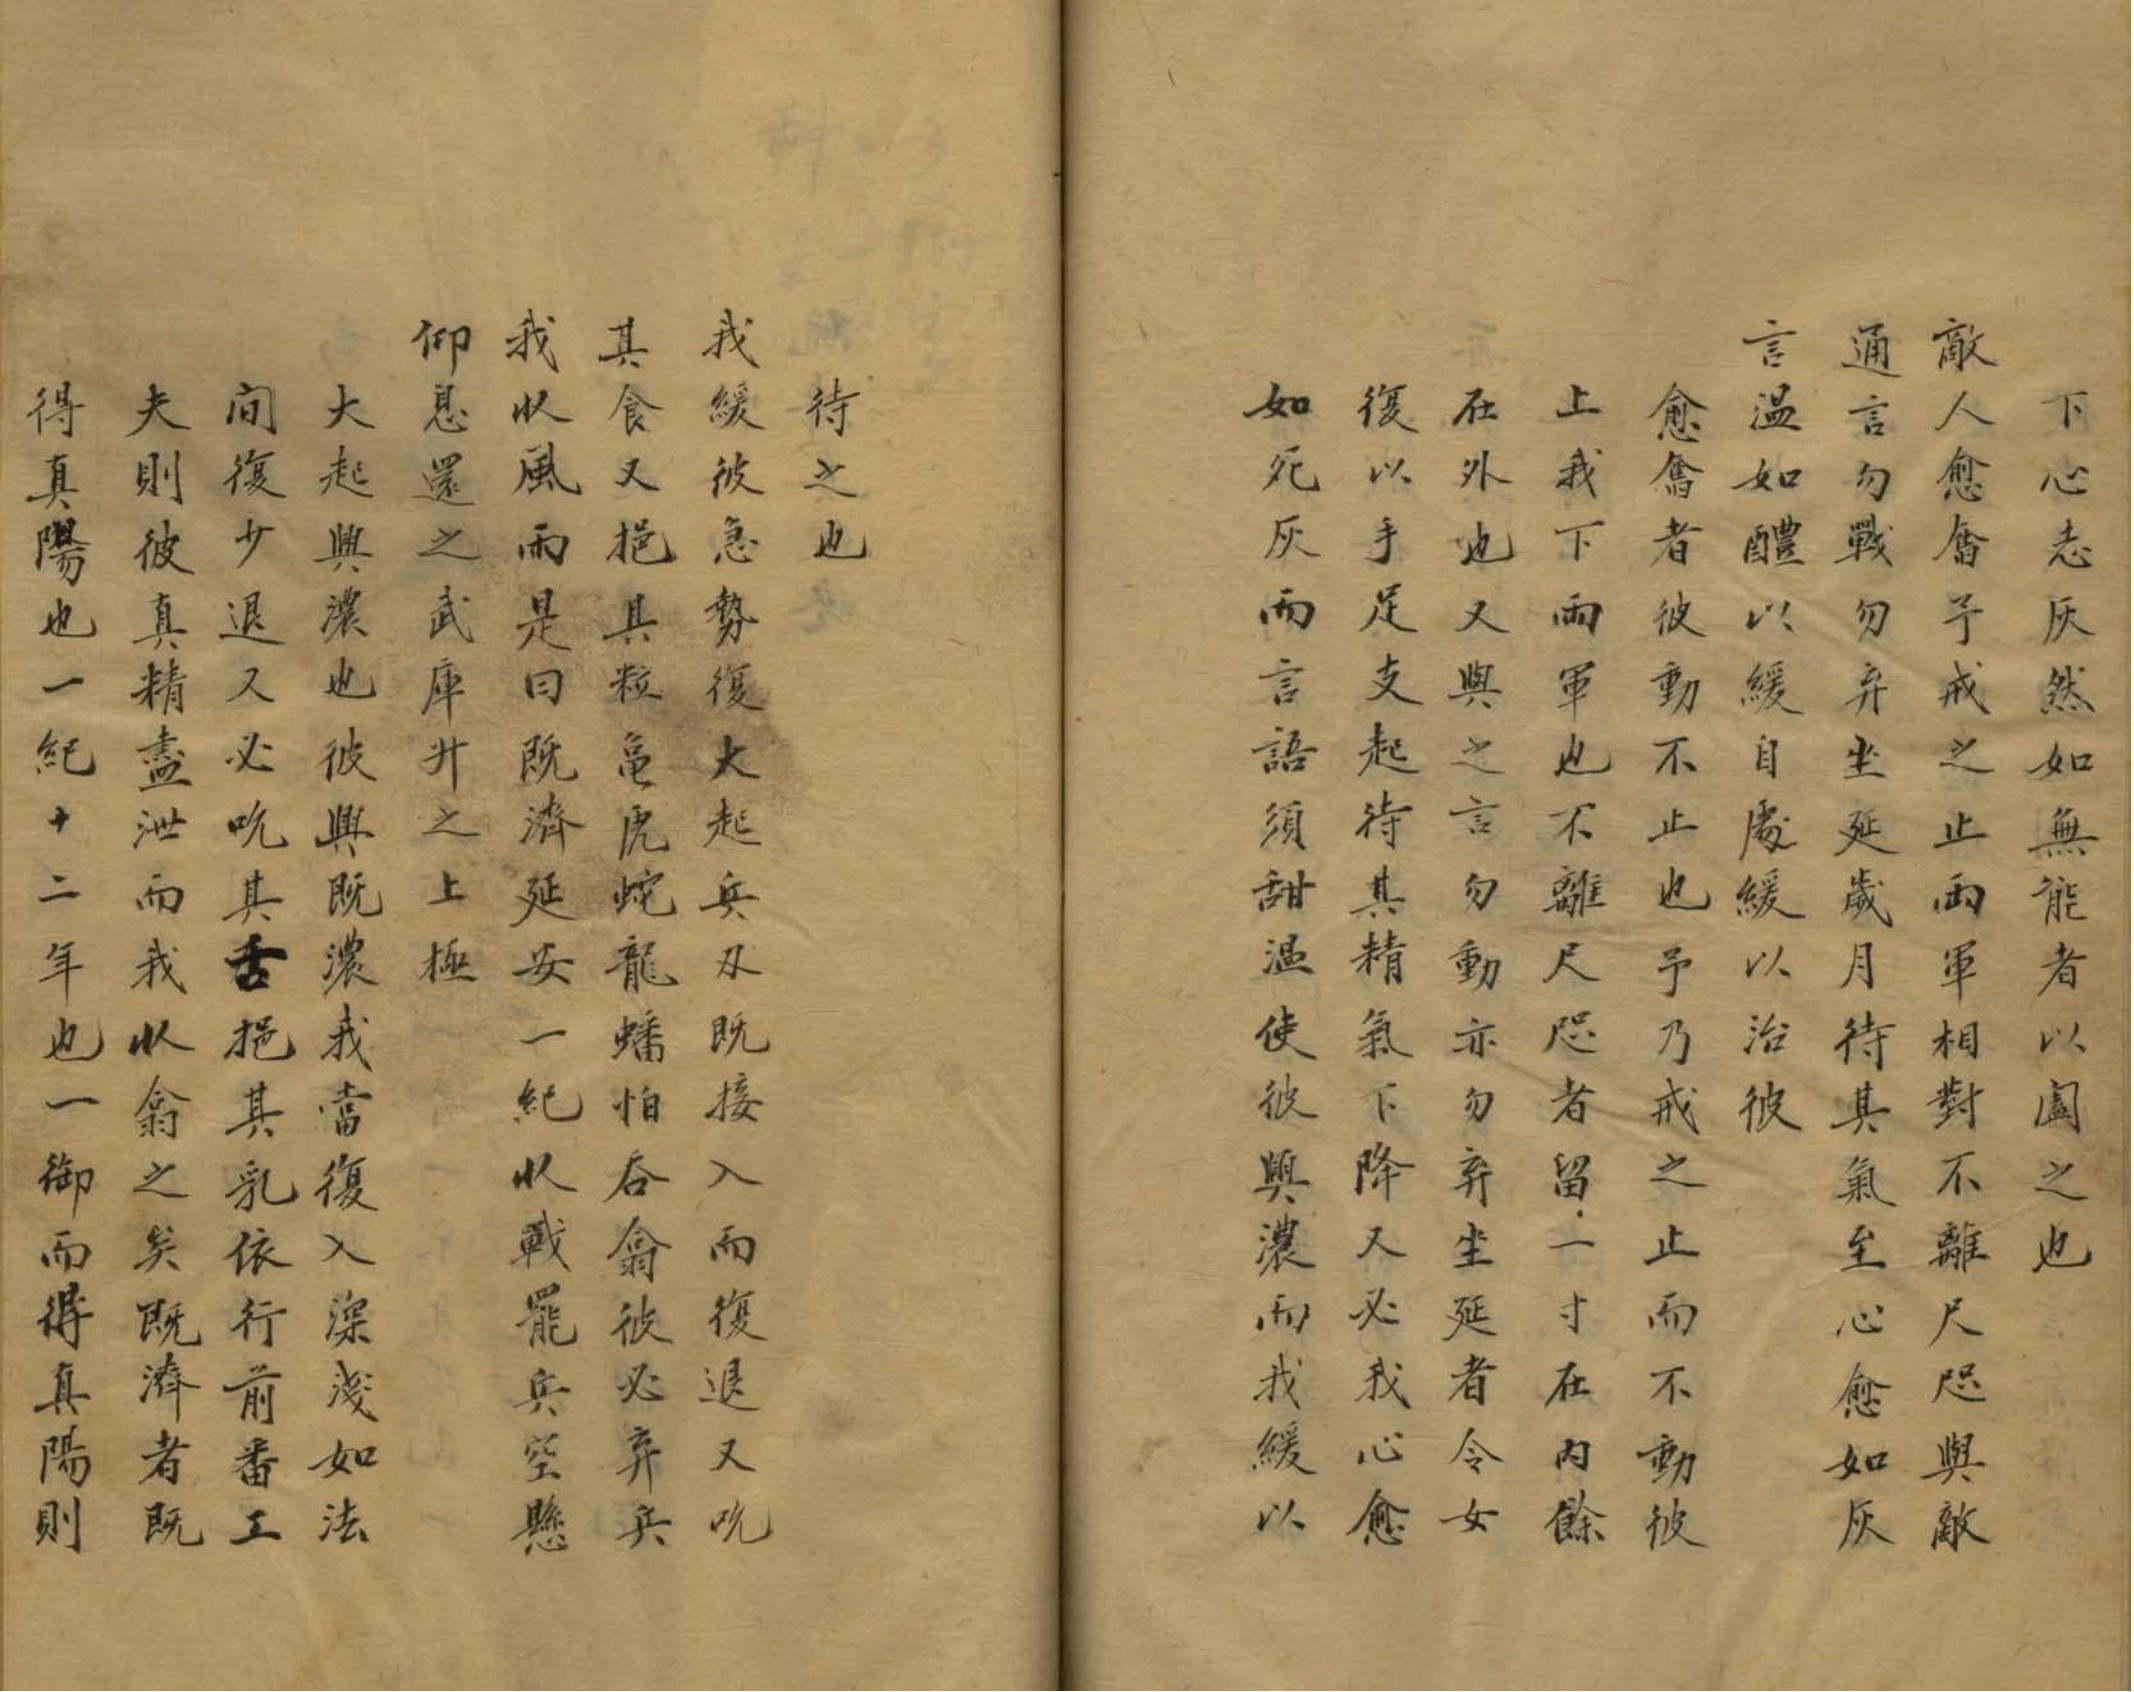 下心志灰然如無能者以圖之也
敵人愈奮予戒之止兩軍相對不離尺咫與敵
通言勿戰勿弃坐延歲月待其氣至心愈如灰
言溫如醴以緩自處緩以治彼
愈奮者彼動不止也予乃戒之止而不動彼
上我下兩軍也不離尺咫者留一寸在內餘
在外也又與之言勿動亦勿弃坐延者令女
復以手足支起待其精氣下降又必我心愈
如死灰而言語須甜溫使彼興濃而我緩以
待之也
我緩彼急勢復大起兵刃既接入而復退又吮
其食又挹其粒龟虎蛇龍蟠怕吞翕彼必弃兵
我收風雨是曰既濟延安一紀收戰罷兵空懸
仰息還之武庫升之上極
大起興濃也彼興既濃我當復入深淺如法
间復少退又必吮其舌挹其乳依行前番工
夫則彼真精盡泄而我收翕之矣既濟者既
得真陽也一紀十二年也一御而得真陽則